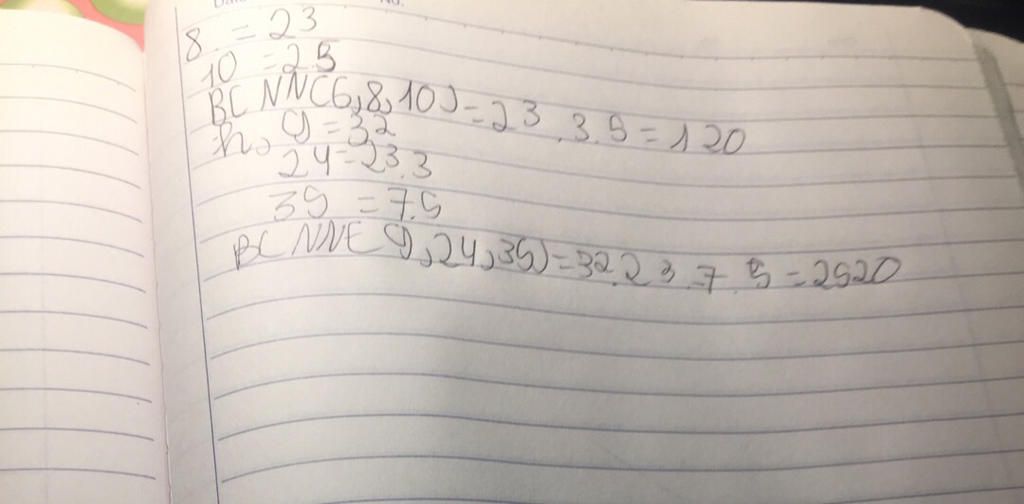 8 = 23
10 = 2 5
BCNN(6,8,10) = 23 . 3 . 5 = 120
h, 9 = 32
24 = 23.3
35 = 7.5
BCNN(9,24,35) = 32.23.7.5 = 2520